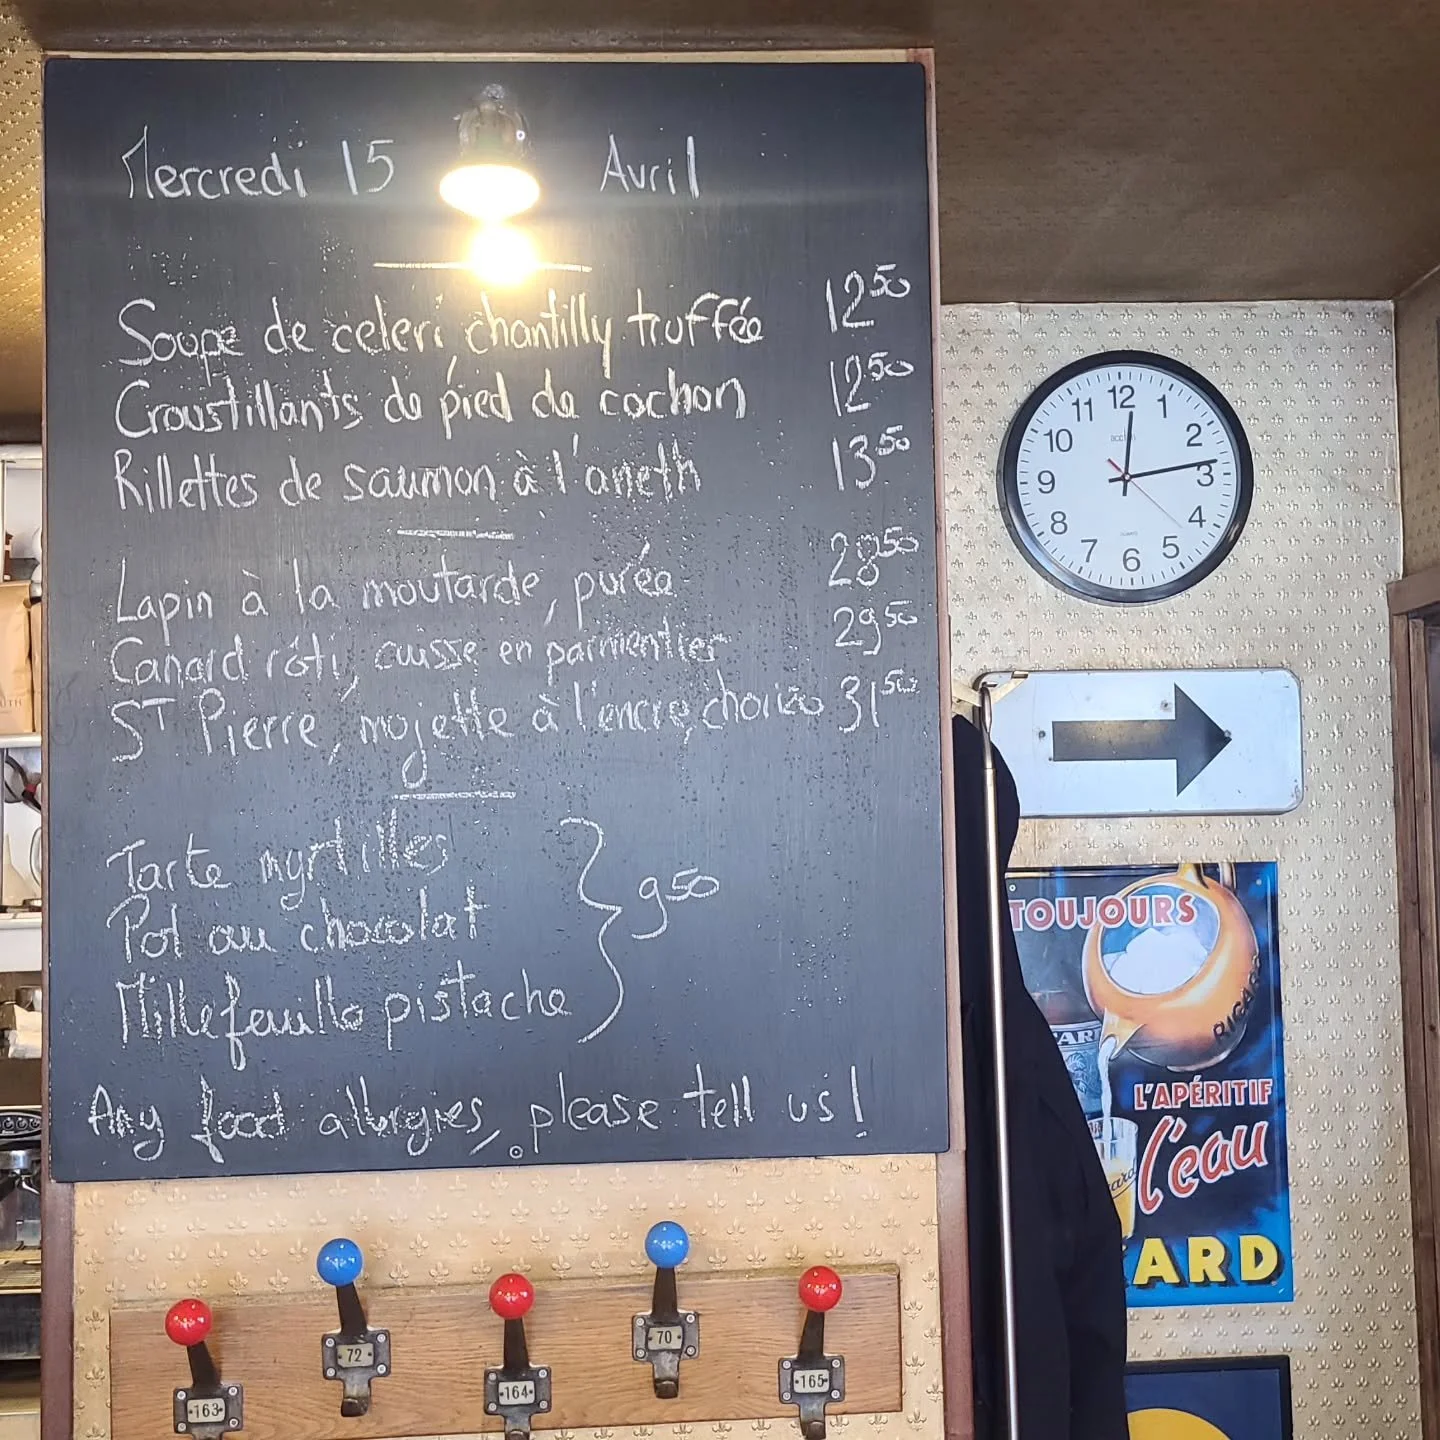 Mercredi 15 Avril
Soupe de celeri, chantilly truffée 12⁵⁰
Croustillants de pied de cochon 12⁵⁰
Rillettes de saumon à l'aneth 13⁵⁰
Lapin à la moutarde, purée 28⁵⁰
Canard rôti, cuisse en parmentier 29⁵⁰
Sᵀ Pierre, mojette à l'encre, chorizo 31⁵⁰
Tarte myrtilles
Pot au chocolat
Millefeuille pistache
9⁵⁰
Any food allergies, please tell us!
12
1
2
3
4
5
6
7
8
9
10
11
TOUJOURS
RICARD
L'APÉRITIF
l'eau
ARD
163
72
164
70
165